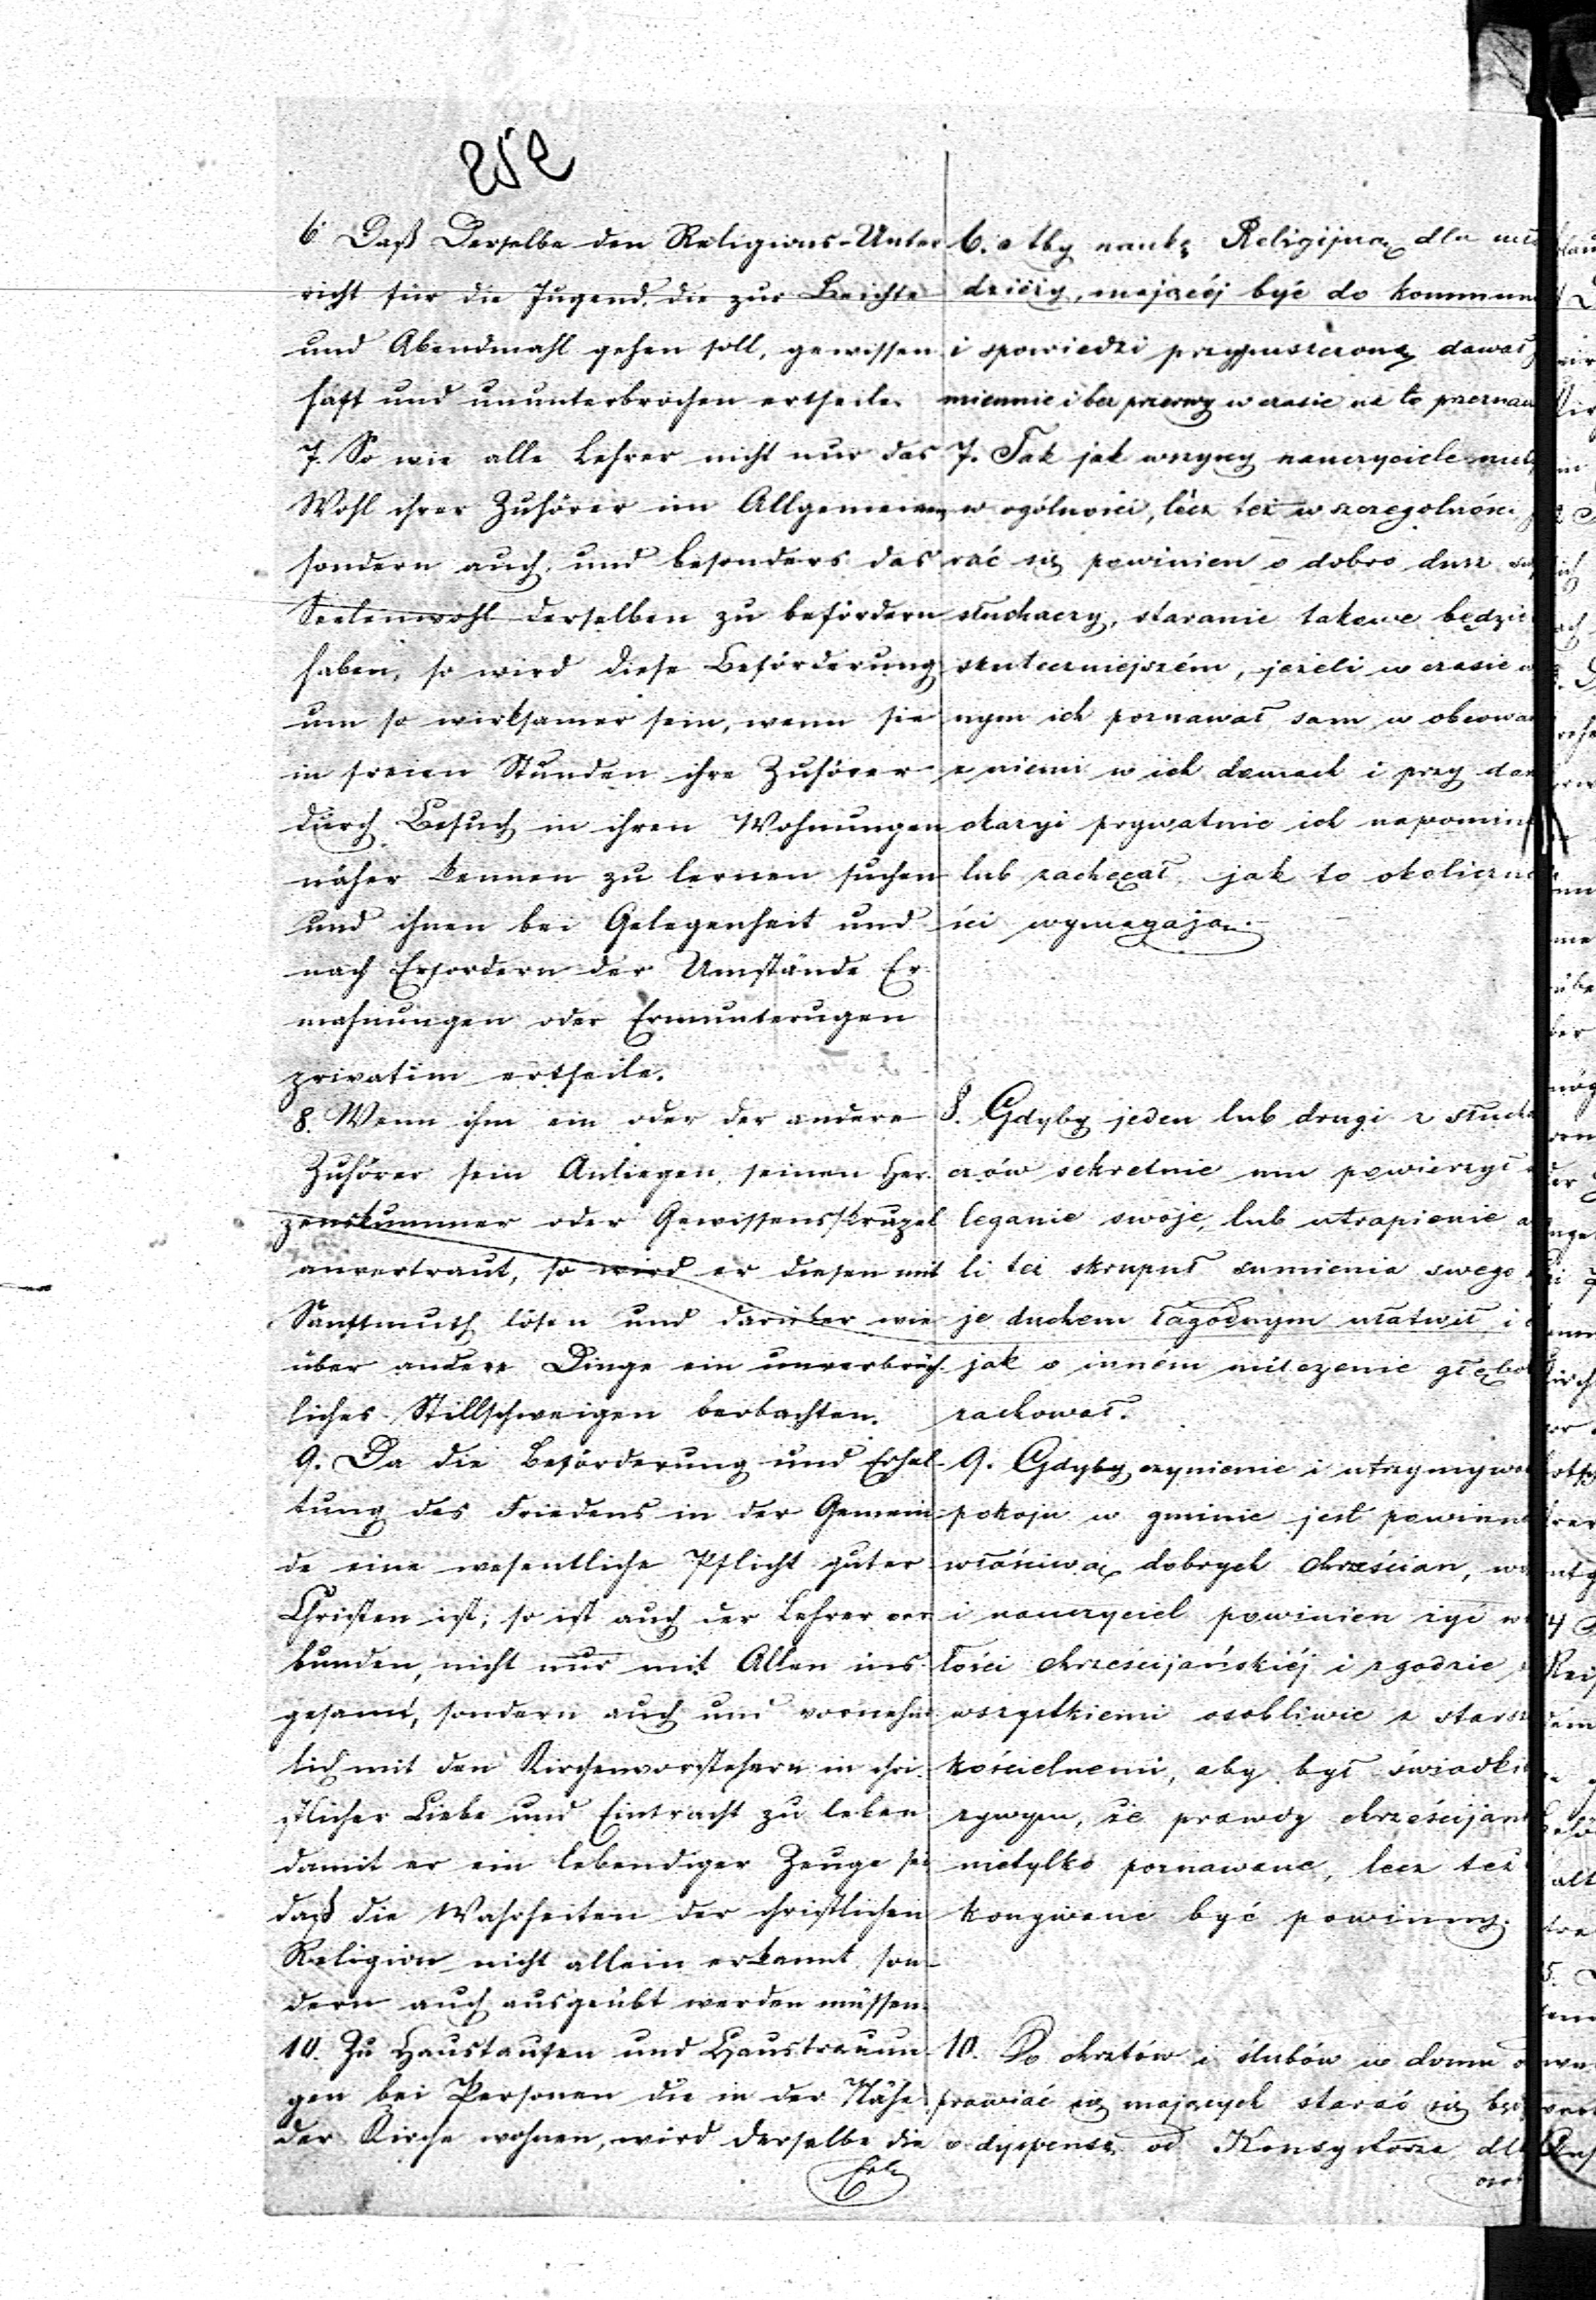 252
6 Daß Derselbe den Religions-Unter
richt für die Jugend, die zur Beichte
und Abendmahl gehen soll, gewissen
haft und ununterbrochen ertheile.
7. So wie alle Lehrer nicht nur das
Wohl ihrer Zuhörer im Allgemeinen
sondern auch, und besonders das
Seelenwohl derselben zu befördern
haben, so wird diese Beförderung
um so wirksamer sein, wenn sie
in freien Stunden ihre Zuhörer
durch Besuch in ihren Wohnungen
näher kennen zu lernen suchen
und ihnen bei Gelegenheit und
nach Erfordern der Umstände Er-
mahnungen oder Ermunterugen
privatim ertheile.
8. Wenn ihm ein oder der andere
Zuhörer sein Anliegen, seinen Her-
zenskummer oder Gewissensskrupel
anvertraut, so wird er diesen mit
Sanftmuth lösen und darüber wie
über andere Dinge ein unverbrüch-
liches Stillschweigen beobachten.
9. Da die Beförderung und Erhal-
tung des Friedens in der Gemein-
de eine wesentliche Pflicht guter
Christen ist, so ist auch der Lehrer ver
bunden, nicht nur mit Allen ins
gesamt, sondern auch und vornehm
lich mit den Kirchenvorstehern in chri-
stlicher Liebe und Eintracht zu leben
damit er ein lebendiger Zeuge sei
daß die Wahrheiten der christlichen
Religion nicht allein erkannt, son-
dern auch ausgeübt werden müssen.
10. Zu Haustaufen und Haustrauun-
gen bei Personen die in der Nähe
der Kirche wohnen, wird derselbe die
6. Aby naukę Religijną dla
dzieży, mającéj być do kommun
i spowiedzi przypuszczoną dawał
miennie i bez przerwy w czasie na to przeznacz
7. Tak jak wszyscy nauczyciele
w ogólności, lécz też w szczególności
rać się powinien o dobro dusz
słuchaczy, staranie takowe będzie
skuteczniejszém, jeżeli w czasie
nym ich poznawał sam w obcowan
z niemi w ich domach i przy
okazyi prywatnie ich napomin
lub zachęcał, jak to okoliczno
ści wymagają.
8. Gdyby jeden lub drugi z słucha
czów sekretnie mu powierzył
leganie swoje, lub utrapienie
li też skrupuł sumienia swego
je duchem łagodnym ułatwił i
jak o inném milczenie głębok
zachował.
9. Gdyby czynienie i utrzymywa
pokoju w gminie jest powinn
właściwą dobrych chrześcian,
i nauczyciel powinien żyć w
łości chrześcijańskiéj i zgodzie
wszystkiemi osobliwie z starsz
kościelnemi, aby był świadki
żywym, że prawdy chrześcijań
nietylko poznawane, lecz też
konywane być powinny.
10. Do chrztów i ślubów w domu
prawiać się mających starać się
o dyspensę od Konsystorza dl